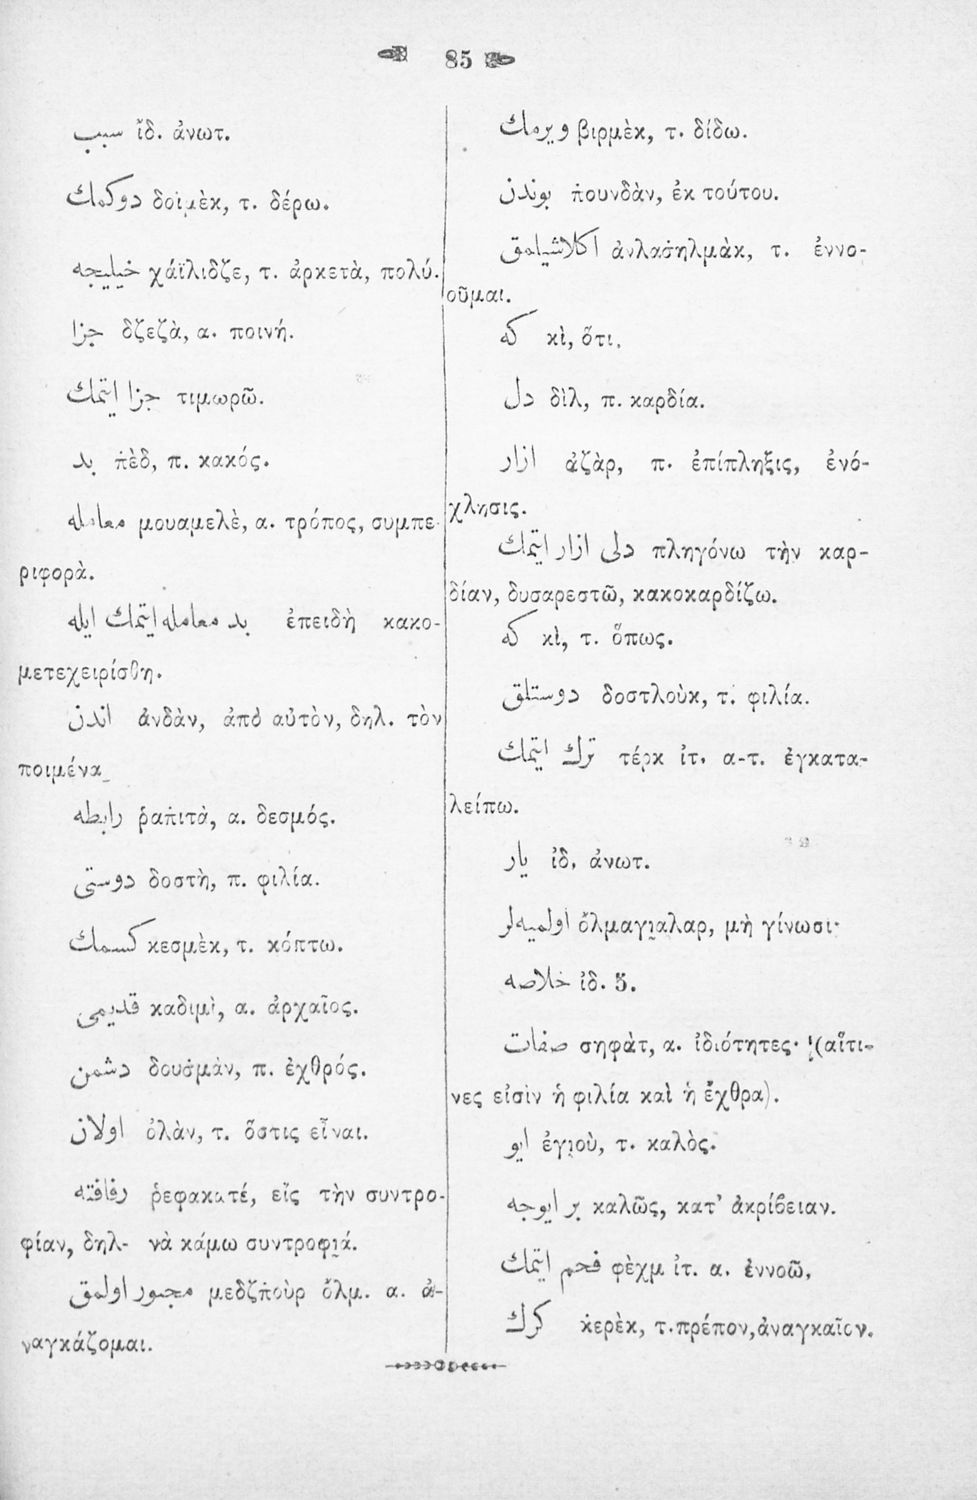 85
سبب ἴδ. ἀνωτ.
دوكمك δοϊμὲκ, τ. δέρω.
خيليجه χάϊλιδζε, τ. ἀρκετὰ, πολύ.
جزا δζεζὰ, α. ποινή.
جزا ايتمك τιμωρῶ.
بد π̇ὲδ, π. κακός.
معامله μουαμελὲ, α. τρόπος, συμπε-
ριφορὰ.
بد معامله ايتمك ايله ἐπειδὴ κακο-
μετεχειρίσθη.
اندن ἀνδὰν, ἀπὸ αὐτὸν, δηλ. τὸν
ποιμένα
رابطه ῥαπ̇ιτὰ, α. δεσμός.
دوستى δοστὴ, π. φιλία.
كسمك κεσμὲκ, τ. κόπτω.
قديمى καδιμὶ, α. ἀρχαῖος.
دشمن δουσ̇μὰν, π. ἐχθρός.
اولان ὀλὰν, τ. ὅστις εἶναι.
رفاقته ῥεφακατέ, εἰς τὴν συντρο-
φίαν, δηλ- νὰ κάμω συντροφιά.
مجبور اولمق μεδζπ̇οὺρ ὄλμ. α. ἀ-
ναγκάζομαι.
ويرمك βιρμὲκ, τ. δίδω.
بوندن π̇ουνδὰν, ἐκ τούτου.
اكلاشيلمق ἀνλασ̇ηλμὰκ, τ. ἐννο-
οῦμαι.
كه κὶ, ὅτι.
دل δὶλ, π. καρδία.
ازار ἀζὰρ, π. ἐπίπληξις, ἐνό-
χλησις.
دلى ازار ايتمك πληγόνω τὴν καρ-
δίαν, δυσαρεστῶ, κακοκαρδίζω.
كه κὶ, τ. ὅπως.
دوستلق δοστλοὺκ, τ. φιλία.
ترك ايتمك τέρκ ἰτ. α-τ. ἐγκατα-
λείπω.
يار ἰδ. ἀνωτ.
اولميه‌لر ὄλμαγιαλαρ, μὴ γίνωσι·
خلاصه ἰδ. 5.
صفات σηφὰτ, α. ἰδιότητες· (αἵτι-
νες εἰσὶν ἡ φιλία καὶ ἡ ἔχθρα).
ايو ἐγιοὺ, τ. καλὸς.
بر ايوجه καλῶς, κατ' ἀκρίβειαν.
فحم ايتمك φὲχμ ἰτ. α. ἐννοῶ,
كرك κερὲκ, τ. πρέπον, ἀναγκαῖον.